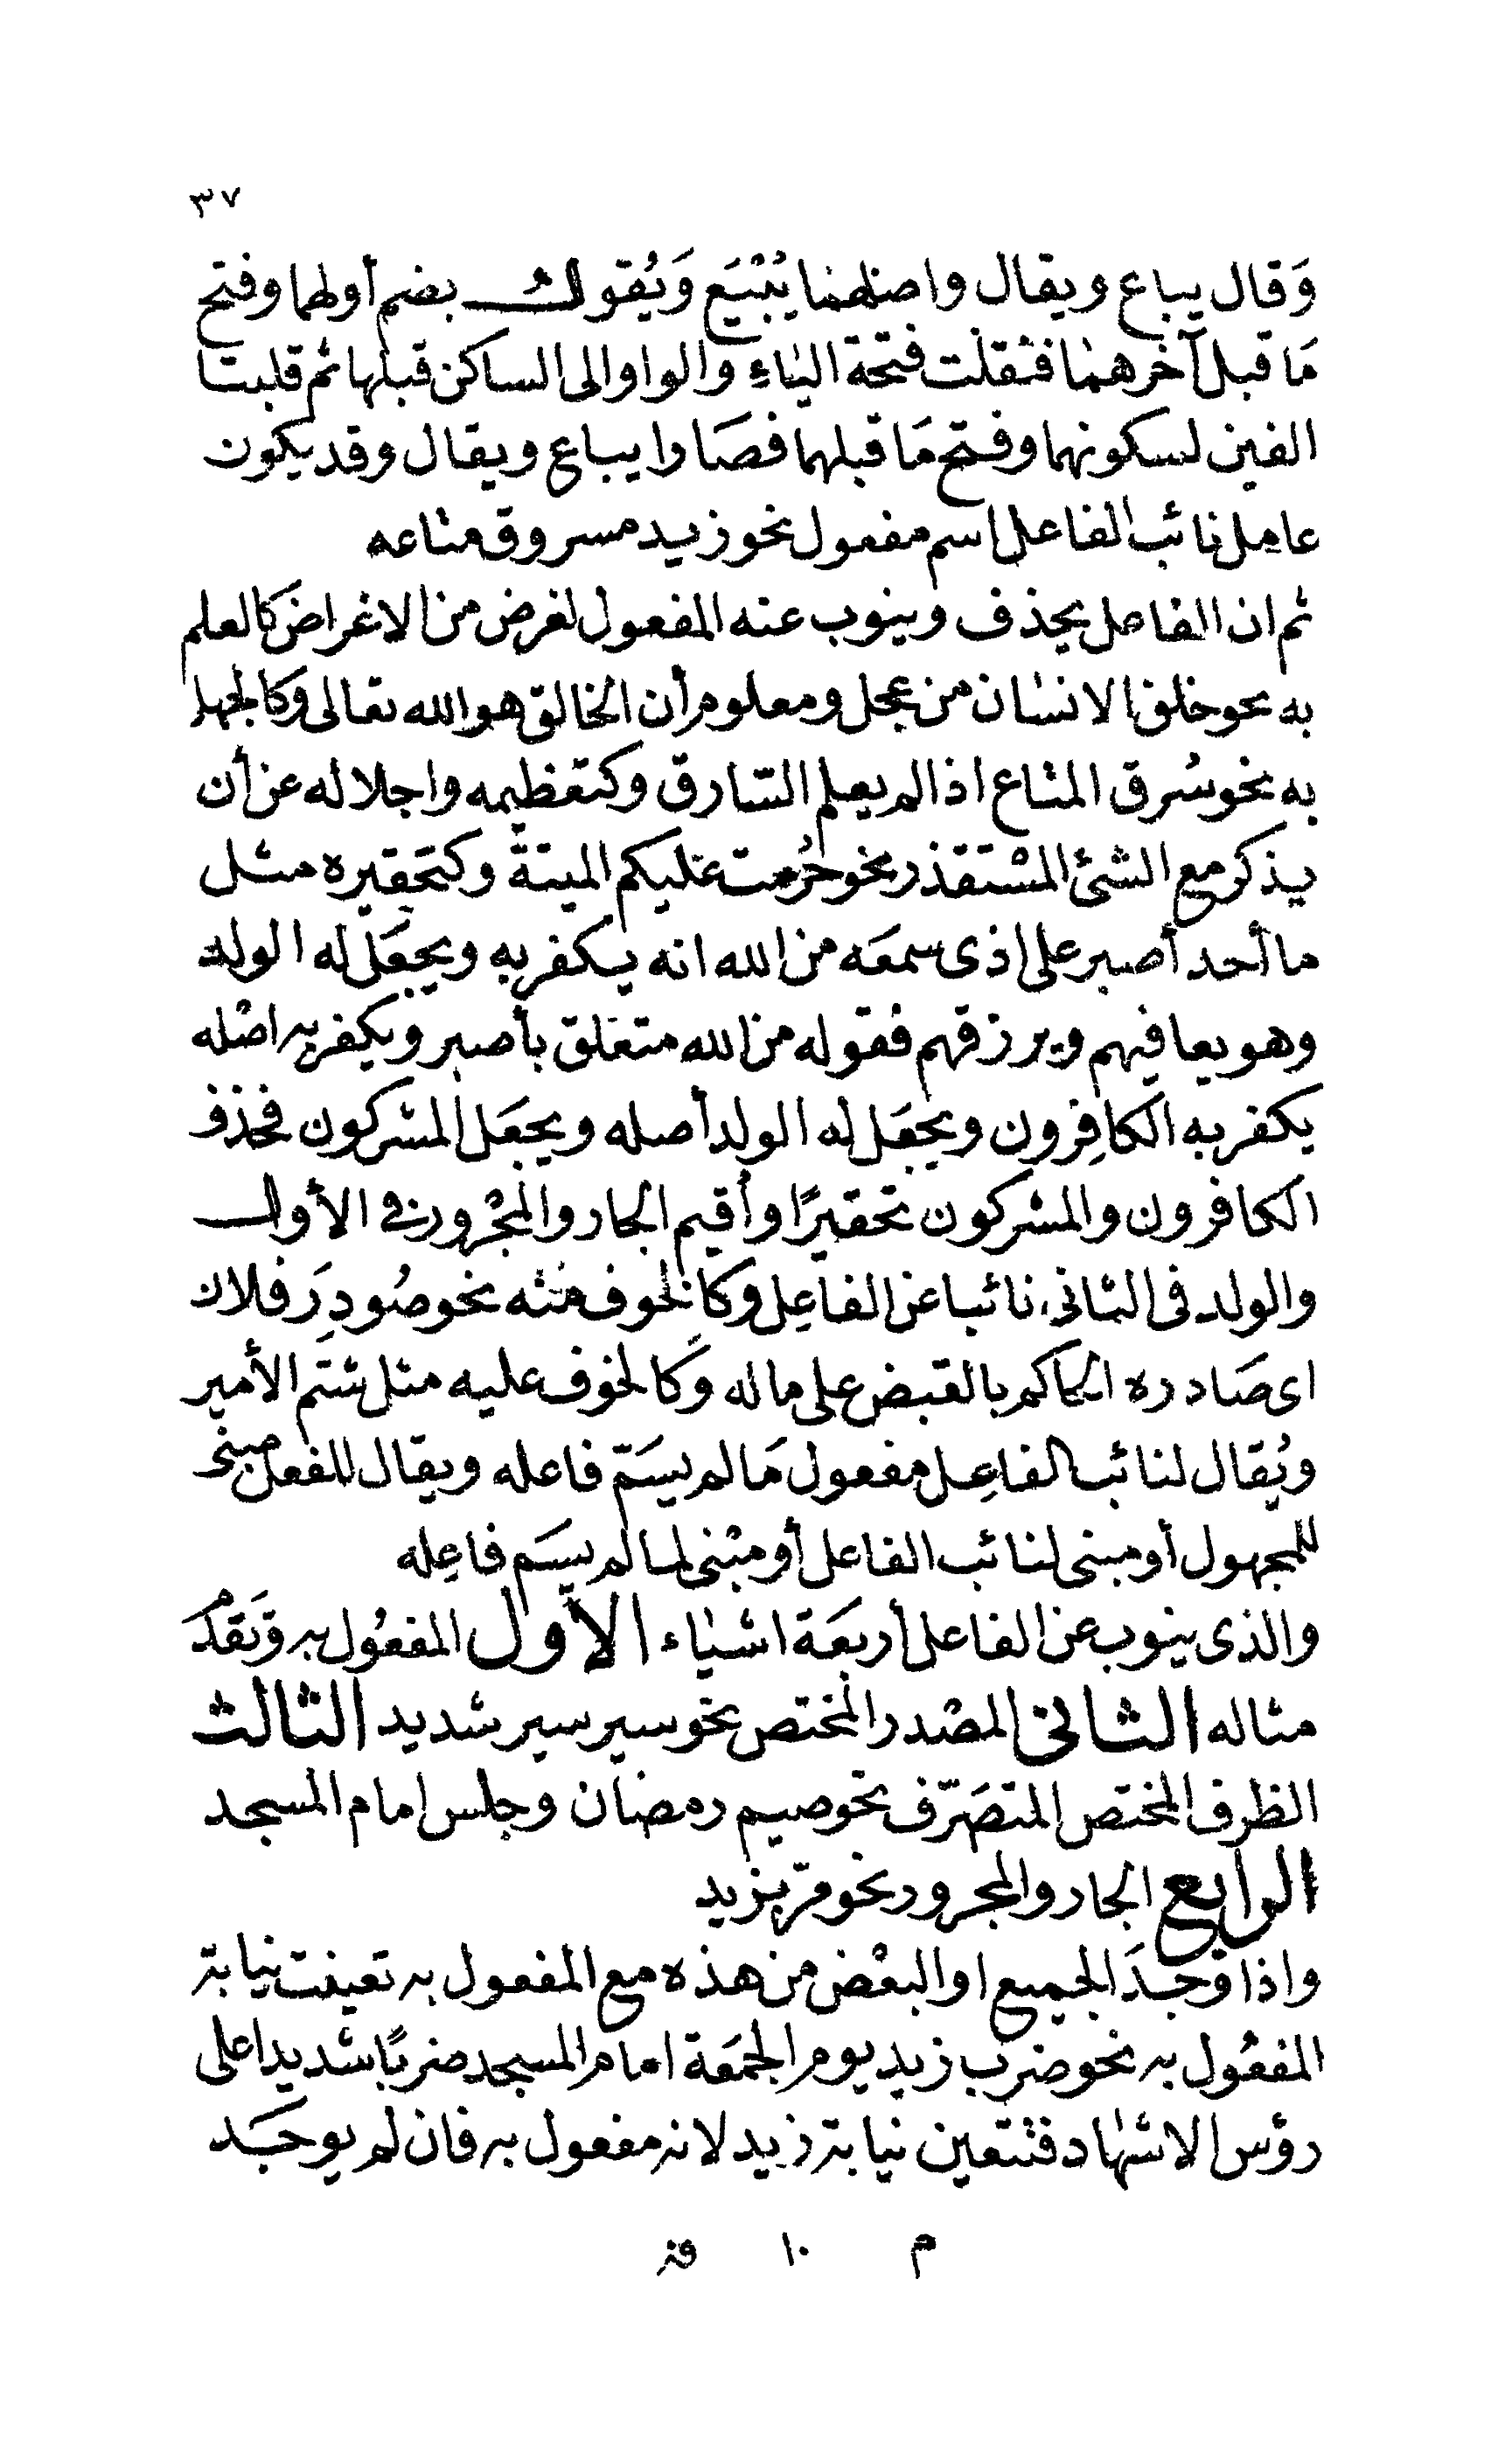 ٣٧
وَقال يباع ويقال واصلهما يُبْيَع وَيُقْوَل بضم أولهما وفتح
مَا قبل آخرهما فنقلت فتحة الياءِ والواو الى الساكن قبلها ثم قلبتا
الفين لسكونهما وفتح مَا قبلهما فصَارا يباع ويقال وقد يكون
عامِل نائب الفاعل اسم مفعول نحو زيد مسروق متاعه
ثم ان الفاعل يحذف وينوب عنه المفعول لغرض من الاغراض كالعلم
به نحو خلق الانسان من عجل ومعلوم أن الخالق هو الله تعالى وَكالجهل
به نحو سُرق المتاع اذا لم يعلم السّارق وكتعظيمه واجلاله عن أن
يذكر مع الشئ المسْتقذر نحو حُرمت عليكم الميتة وكتحقيره مثل
ما أحد أصبر على اذى سمعَه من الله انه يكفر به ويجعَل له الولد
وهو يعافيهم ويرزقهم فقوله من الله متعَلق بأصبر ويكفر به اصْله
يكفر به الكافِرون ويجعَل له الولد أصله ويجعَل المشركون فحذف
الكافرون والمشركون تحقيرًا وأقيم الجار والمجْرور في الأول
والولد فى الثانى نائبا عن الفاعِل وكالخوف منْه نحو صُودِرَ فلان
اى صَادره الحاكم بالقبض على ماله وَكالخوف عليه مثل شتم الأمير
ويُقال لنائب الفاعِل مفعول مَا لم يسَمّ فاعله ويقال للفعل مبنى
للمجهول أو مبنى لنائب الفاعل أو مبْنى لما لم يسَم فاعِله
والذى ينوب عن الفاعل أربعَة اشياء الاول المفعُول به وَتَقدم
مثاله الثانى المصْدر المختص نحو سير سير شديد الثالث
الظرف المختص المتصَرّف نحو صيم رمضان وجلس امام المسجد
الرابع الجار والمجرور نحو مرّ بزيد
واذا وجدَ الجميع او البعْض من هذه مع المفعول به تعينت نيابة
المفعُول به نحو ضرب زيد يوم الجمَعة امام المسجد ضربًا شديدا على
رؤس الاشهاد فتتعين نيابة زيد لانه مفعول به فان لم يوجَد
م ١٠ قز